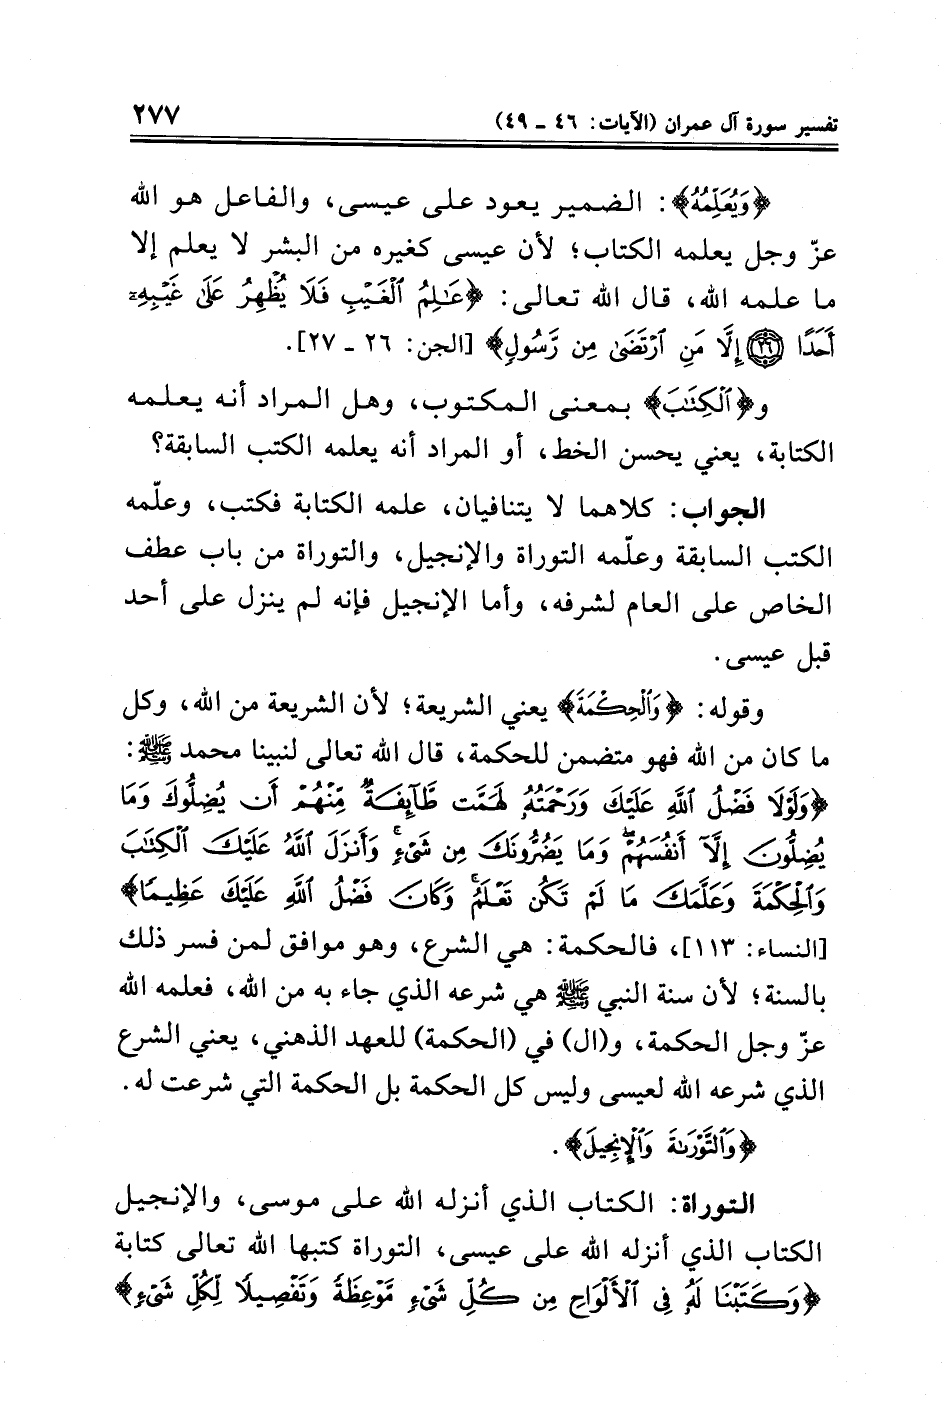 تفسير سورة آل عمران (الآيات: ٤٦ ـ ٤٩) ٢٧٧
﴿وَيُعَلِّمُهُ﴾: الضمير يعود على عيسى، والفاعل هو الله
عزّ وجل يعلمه الكتاب؛ لأن عيسى كغيره من البشر لا يعلم إلا
ما علمه الله، قال الله تعالى: ﴿عَٰلِمُ ٱلْغَيْبِ فَلَا يُظْهِرُ عَلَىٰ غَيْبِهِۦٓ
أَحَدًا ۝٢٦ إِلَّا مَنِ ٱرْتَضَىٰ مِن رَّسُولٍ﴾ [الجن: ٢٦ ـ ٢٧].
و﴿ٱلْكِتَٰبَ﴾ بمعنى المكتوب، وهل المراد أنه يعلمه
الكتابة، يعني يحسن الخط، أو المراد أنه يعلمه الكتب السابقة؟
الجواب: كلاهما لا يتنافيان، علمه الكتابة فكتب، وعلّمه
الكتب السابقة وعلّمه التوراة والإنجيل، والتوراة من باب عطف
الخاص على العام لشرفه، وأما الإنجيل فإنه لم ينزل على أحد
قبل عيسى.
وقوله: ﴿وَٱلْحِكْمَةَ﴾ يعني الشريعة؛ لأن الشريعة من الله، وكل
ما كان من الله فهو متضمن للحكمة، قال الله تعالى لنبينا محمد ﷺ:
﴿وَلَوْلَا فَضْلُ ٱللَّهِ عَلَيْكَ وَرَحْمَتُهُۥ لَهَمَّت طَّآئِفَةٌ مِّنْهُمْ أَن يُضِلُّوكَ وَمَا
يُضِلُّونَ إِلَّآ أَنفُسَهُمْ ۖ وَمَا يَضُرُّونَكَ مِن شَىْءٍ ۚ وَأَنزَلَ ٱللَّهُ عَلَيْكَ ٱلْكِتَٰبَ
وَٱلْحِكْمَةَ وَعَلَّمَكَ مَا لَمْ تَكُن تَعْلَمُ ۚ وَكَانَ فَضْلُ ٱللَّهِ عَلَيْكَ عَظِيمًا﴾
[النساء: ١١٣]، فالحكمة: هي الشرع، وهو موافق لمن فسر ذلك
بالسنة؛ لأن سنة النبي ﷺ هي شرعه الذي جاء به من الله، فعلمه الله
عزّ وجل الحكمة، و(ال) في (الحكمة) للعهد الذهني، يعني الشرع
الذي شرعه الله لعيسى وليس كل الحكمة بل الحكمة التي شرعت له.
﴿وَٱلتَّوْرَىٰةَ وَٱلْإِنجِيلَ﴾.
التوراة: الكتاب الذي أنزله الله على موسى، والإنجيل
الكتاب الذي أنزله الله على عيسى، التوراة كتبها الله تعالى كتابة
﴿وَكَتَبْنَا لَهُۥ فِى ٱلْأَلْوَاحِ مِن كُلِّ شَىْءٍ مَّوْعِظَةً وَتَفْصِيلًا لِّكُلِّ شَىْءٍ﴾